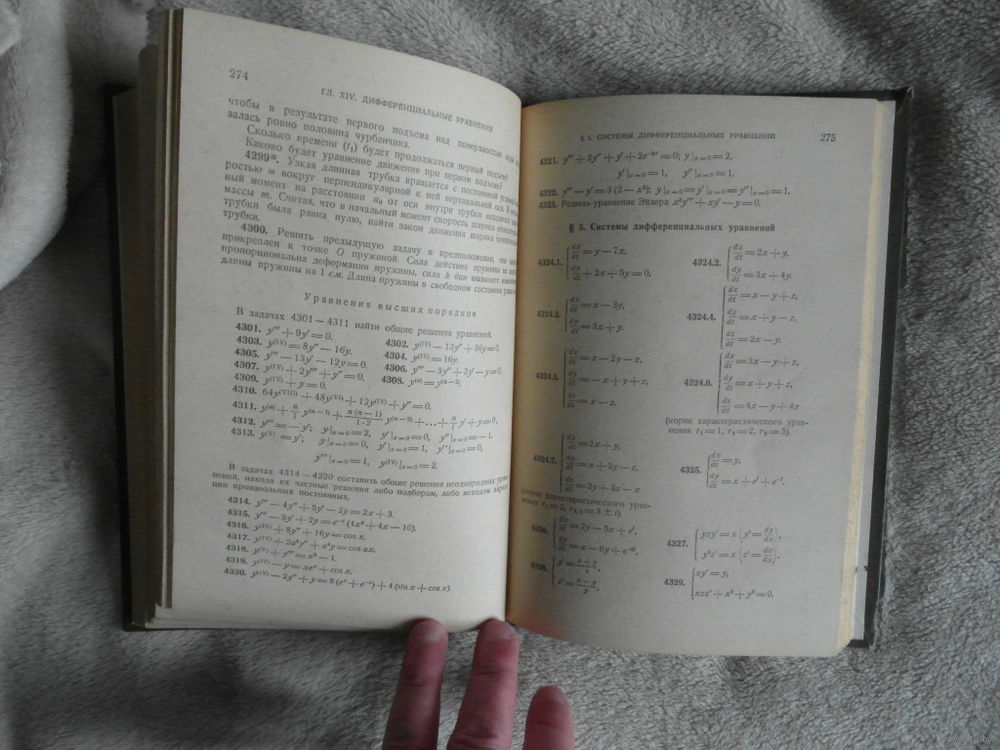 274
ГЛ. XIV. ДИФФЕРЕНЦИАЛЬНЫЕ УРАВНЕНИЯ
чтобы в результате первого подъема над поверхностью
залась ровно половина чурбанчика.
Сколько времени (t₁) будет продолжаться первый подъем?
Каково будет уравнение движения при первом подъеме?
4299*. Узкая длинная трубка вращается с постоянной угловой
ростью ω вокруг перпендикулярной к ней вертикальной оси. В
ный момент на расстоянии a₀ от оси внутри трубки находился
массы m. Считая, что в начальный момент скорость шарика
трубки была равна нулю, найти закон движения шарика
трубки.
4300. Решить предыдущую задачу в предположении, что
прикреплен к точке O пружиной. Сила действия пружины на
пропорциональна деформации пружины, сила k дин вызывает
длины пружины на 1 см. Длина пружины в свободном состоянии
Уравнения высших порядков
В задачах 4301 — 4311 найти общие решения уравнений.
4301. y''' + 9y' = 0. 4302. y^(IV) — 13y'' + 36y = 0.
4303. y^(IV) = 8y'' — 16y. 4304. y^(IV) = 16y.
4305. y''' — 13y' — 12y = 0. 4306. y''' — 3y'' + 3y' — y = 0.
4307. y^(IV) + 2y''' + y'' = 0. 4308. y^(n) = y^(n—2).
4309. y^(IV) + y = 0.
4310. 64y^(VIII) + 48y^(VI) + 12y^(IV) + y'' = 0.
4311. y^(n) + n/1 y^(n—1) + n(n—1)/1·2 y^(n—2) + ... + n/1 y' + y = 0.
4312. y''' = —y'; y|x=0 = 2, y'|x=0 = 0, y''|x=0 = —1.
4313. y^(V) = y'; y|x=0 = 0, y'|x=0 = 1, y''|x=0 = 0,
y'''|x=0 = 1, y^(IV)|x=0 = 2.
В задачах 4314 — 4320 составить общие решения неоднородных урав-
нений, находя их частные решения либо подбором, либо методом вариа-
ции произвольных постоянных.
4314. y''' — 4y'' + 5y' — 2y = 2x + 3.
4315. y''' — 3y' + 2y = e^(—x) (4x² + 4x — 10).
4316. y^(IV) + 8y'' + 16y = cos x.
4317. y^(IV) + 2a²y'' + a⁴y = cos ax.
4318. y^(V) + y''' = x² — 1.
4319. y^(IV) — y = xe^x + cos x.
4320. y^(IV) — 2y'' + y = 8 (e^x + e^(—x)) + 4 (sin x + cos x).
§ 5. СИСТЕМЫ ДИФФЕРЕНЦИАЛЬНЫХ УРАВНЕНИЙ
275
4321. y''' + 2y'' + y' + 2e^(—2x) = 0; y|x=0 = 2,
y'|x=0 = 1, y''|x=0 = 1.
4322. y''' — y' = 3 (2 — x²); y|x=0 = y'|x=0 = y''|x=0 = 1.
4323. Решить уравнение Эйлера x³y''' + xy' — y = 0.
§ 5. Системы дифференциальных уравнений
4324.1. dx/dt = y — 7x, 4324.2. dx/dt = 2x + y,
dy/dt + 2x + 5y = 0. dy/dt = 3x + 4y.
4324.3. dx/dt = x — 3y, 4324.4. dx/dt = x — y + z,
dy/dt = 3x + y. dy/dt = x + y — z,
dz/dt = 2x — y.
4324.5. dx/dt = x — 2y — z, 4324.6. dx/dt = 3x — y + z,
dy/dt = — x + y + z, dy/dt = x + y + z,
dz/dt = x — z. dz/dt = 4x — y + 4z
(корни характеристического урав-
нения r₁ = 1, r₂ = 2, r₃ = 5).
4324.7. dx/dt = 2x + y, 4325. dx/dt = y,
dy/dt = x + 3y — z, dy/dt = x + e^t + e^(—t).
dz/dt = 2y + 3z — x
(корни характеристического урав-
нения r₁ = 2, r₂,₃ = 3 ± i).
4326. dx/dt = 2y — 5x + e^t, 4327. yzy' = x (y' = dy/dx),
dy/dt = x — 6y + e^(—2t). y²z' = x (z' = dz/dx).
4328. y' = x + y/z, 4329. xy' = y,
z' = x — y/y. xzz' + x² + y² = 0.